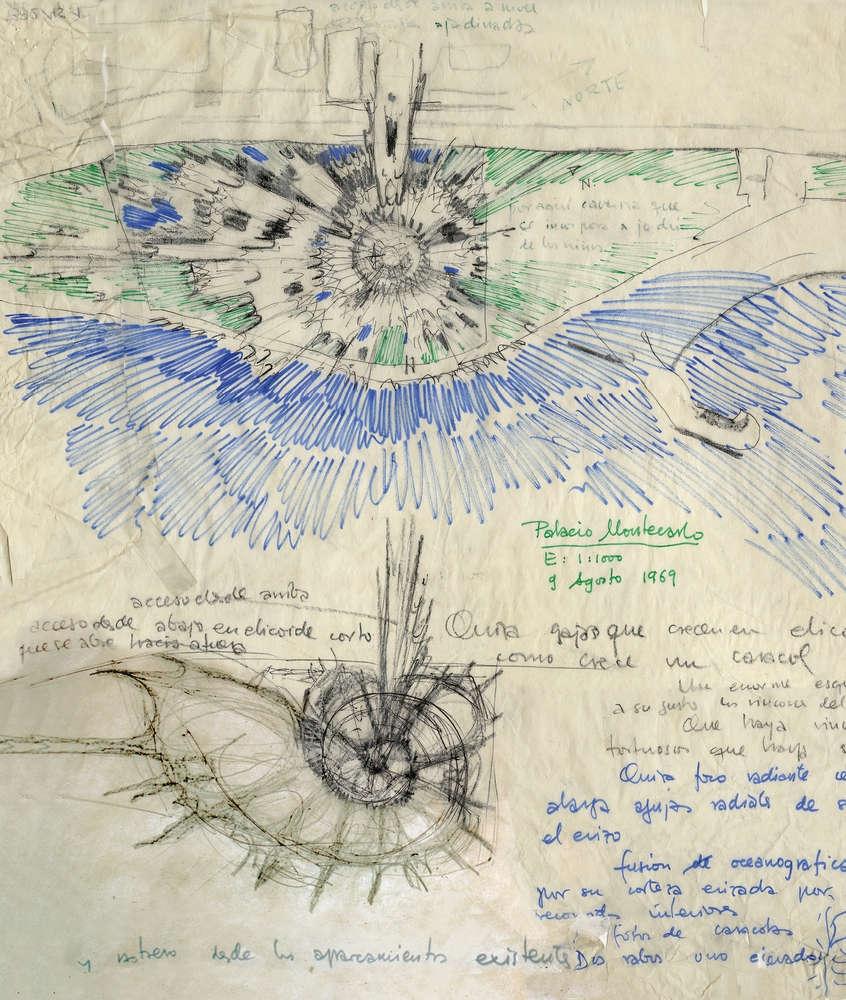 acceso desde arriba a nivel
ajardinadas
NORTE
N.
por aquí caverna que
se incorpora a jardín
de los niños
H
H
Palacio Montecarlo
E: 1:1000
9 Agosto 1969
acceso desde arriba
acceso desde abajo en elicoide corto
que se abre hacia afuera
Quizá gajos que crecen en elico
como crece un caracol
Un enorme esqu
a su gusto los rincones del
Que haya rinc
tortuosos que haya s
Quizá foco radiante ce
alarga agujas radiales de s
el erizo
fusión de oceanografico
por su corteza erizada por
interiores
fotos de caracolas
y rastrero desde los aparcamientos existente
Dos rabos uno elevado y